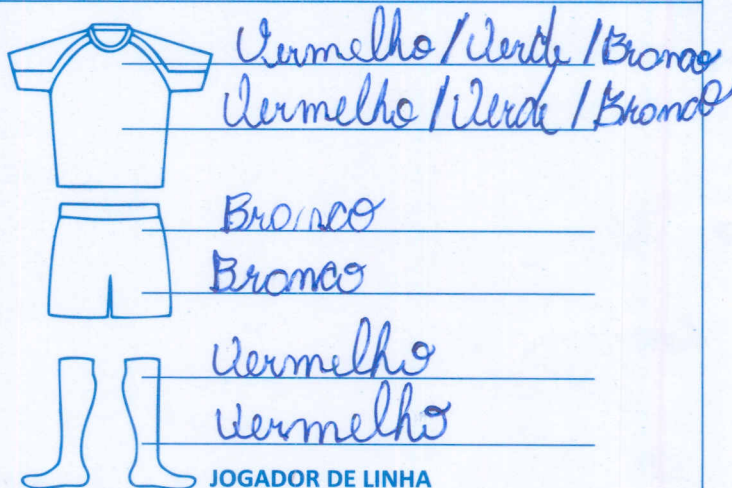 Vermelho / Verde / Branco
Vermelho / Verde / Branco
Branco
Branco
Vermelho
Vermelho
JOGADOR DE LINHA